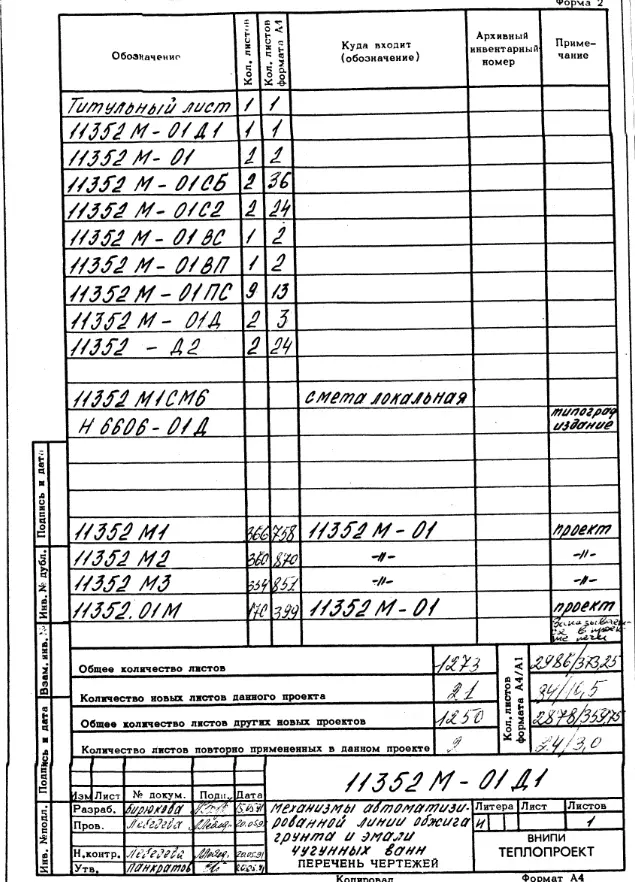 Форма 2
Обозначение Кол. листов Кол. листов формата А4 Куда входит (обозначение) Архивный инвентарный номер Примечание
Титульный лист 1 1
11352 М-01Д1 1 1
11352 М-01 2 2
11352 М-01СБ 2 36
11352 М-01С2 2 24
11352 М-01ВС 1 2
11352 М-01ВП 1 2
11352 М-01ПС 9 13
11352 М-01Д 2 3
11352 - Д2 2 24
11352 М1СМ6 смета локальная
Н 6606-01Д типограф издание
11352 М1 366 758 11352 М-01 проект
11352 М2 360 870 -//- -//-
11352 М3 354 851 -//- -//-
11352.01М 170 399 11352 М-01 проект
Общее количество листов 1273
Количество новых листов данного проекта 21
Общее количество листов других новых проектов 1250
Количество листов повторно примененных в данном проекте 9
Кол. листов формата А4/А1
2986/373,25
34/16,5
24/3,0
Подпись и дата
Инв. № дубл.
Взам. инв. №
Подпись и дата
Инв. № подл.
11352 М-01Д1
Изм Лист № докум. Подп. Дата
Разраб. Бирюкова
Пров. Лебедева 20.05.91
Н.контр. Лебедева 20.05.91
Утв. Панкратов
Механизмы автоматизи-
рованной линии обжига
грунта и эмали
чугунных ванн
ПЕРЕЧЕНЬ ЧЕРТЕЖЕЙ
Литера Лист Листов
И 1
ВНИПИ
ТЕПЛОПРОЕКТ
Копировал Формат А4